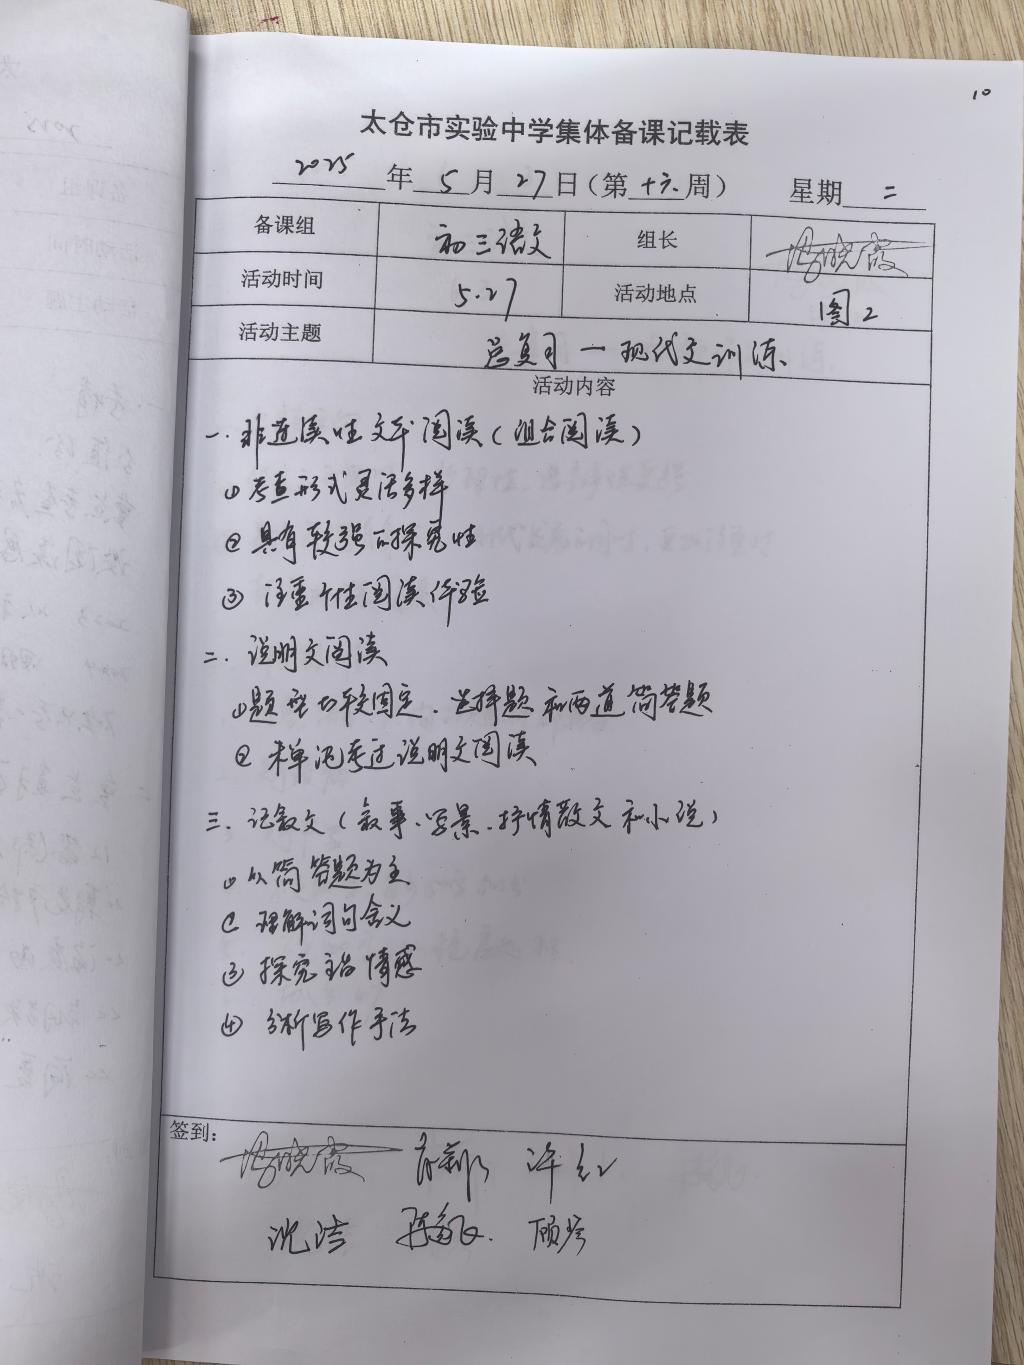 10
太仓市实验中学集体备课记载表
2025年5月27日(第十六周) 星期二
备课组 初三语文 组长
活动时间 5.27 活动地点 图2
活动主题 总复习一现代文训练
活动内容
一.非连续性文本阅读(组合阅读)
①考查形式灵活多样
②具有较强的探究性
③注重个性阅读体验
二.说明文阅读
①题型比较固定.选择题和两道简答题
②未单独考过说明文阅读
三.记叙文(叙事、写景、抒情散文和小说)
①以简答题为主
②理解词句含义
③探究主旨情感
④分析写作手法
签到:
许红
沈洁 陈敏 顾彦